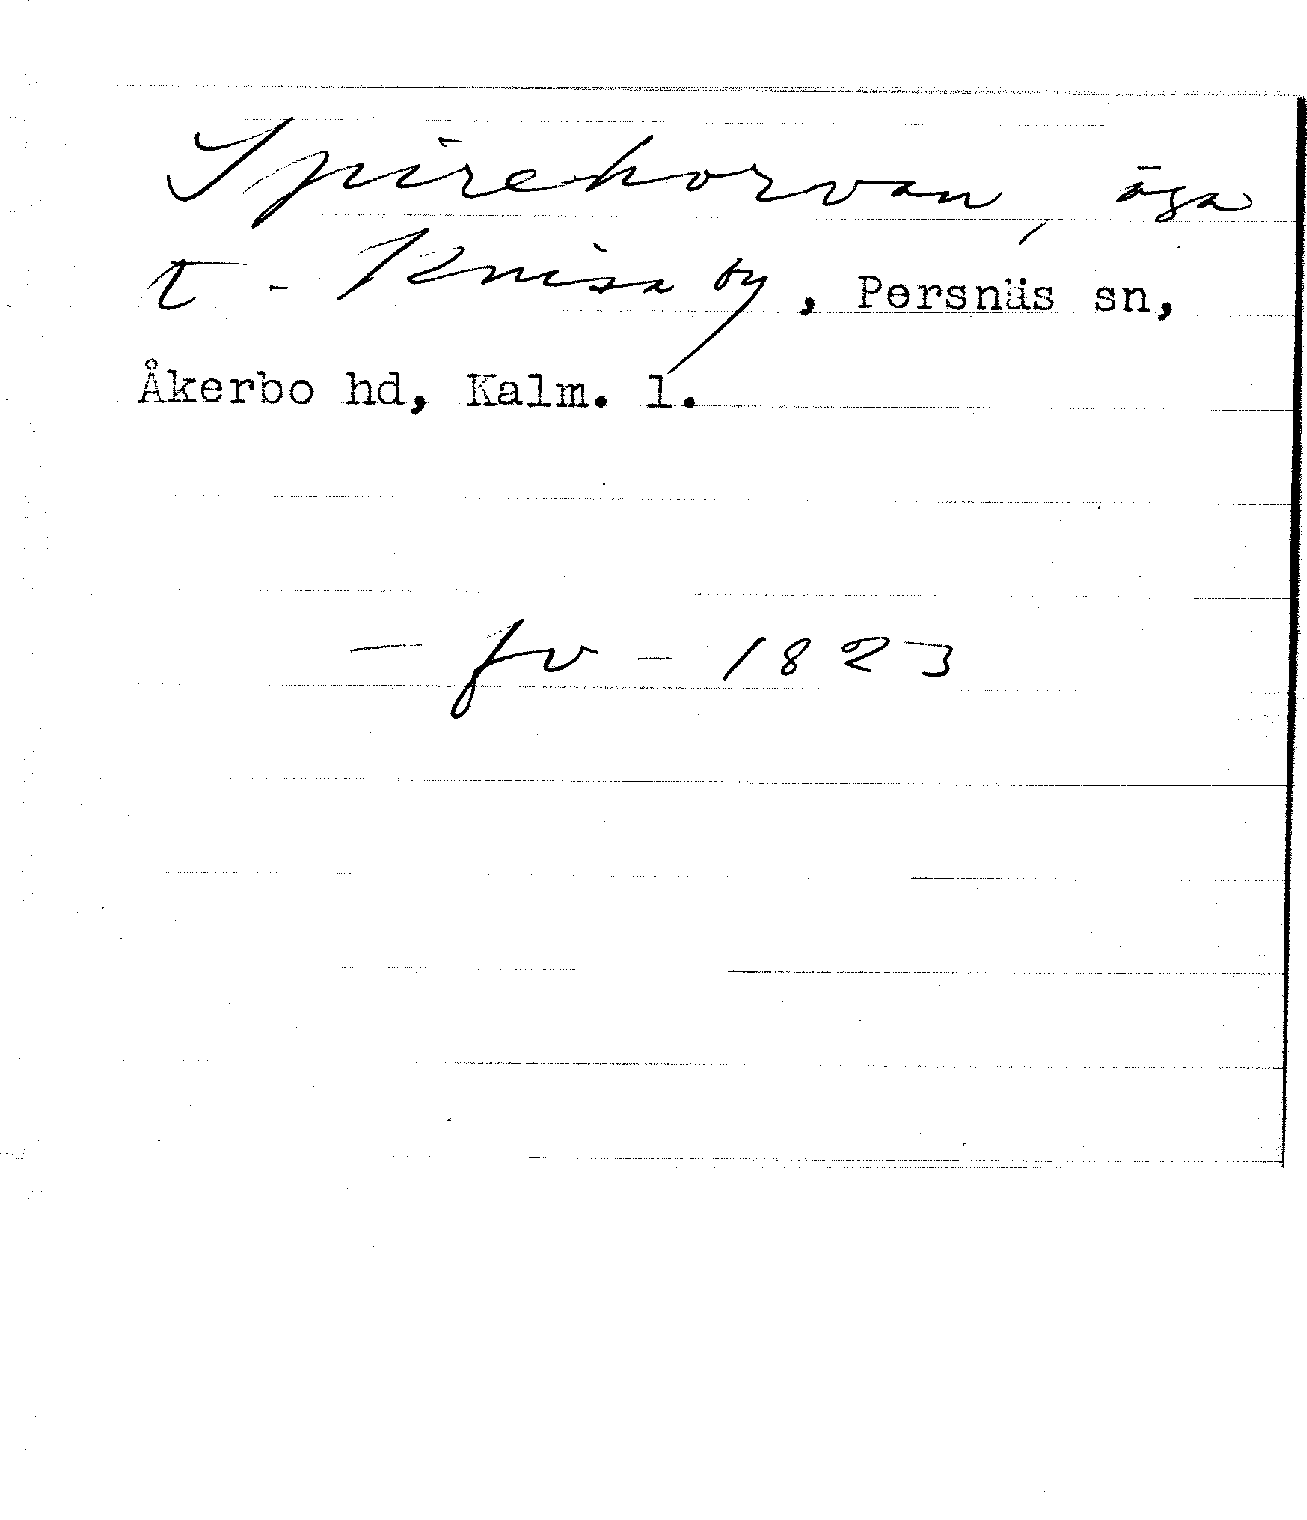 Spirehorvan, äga
t - Knisa by, Persnäs sn,
Åkerbo hd, Kalm. l.
- fv - 1823